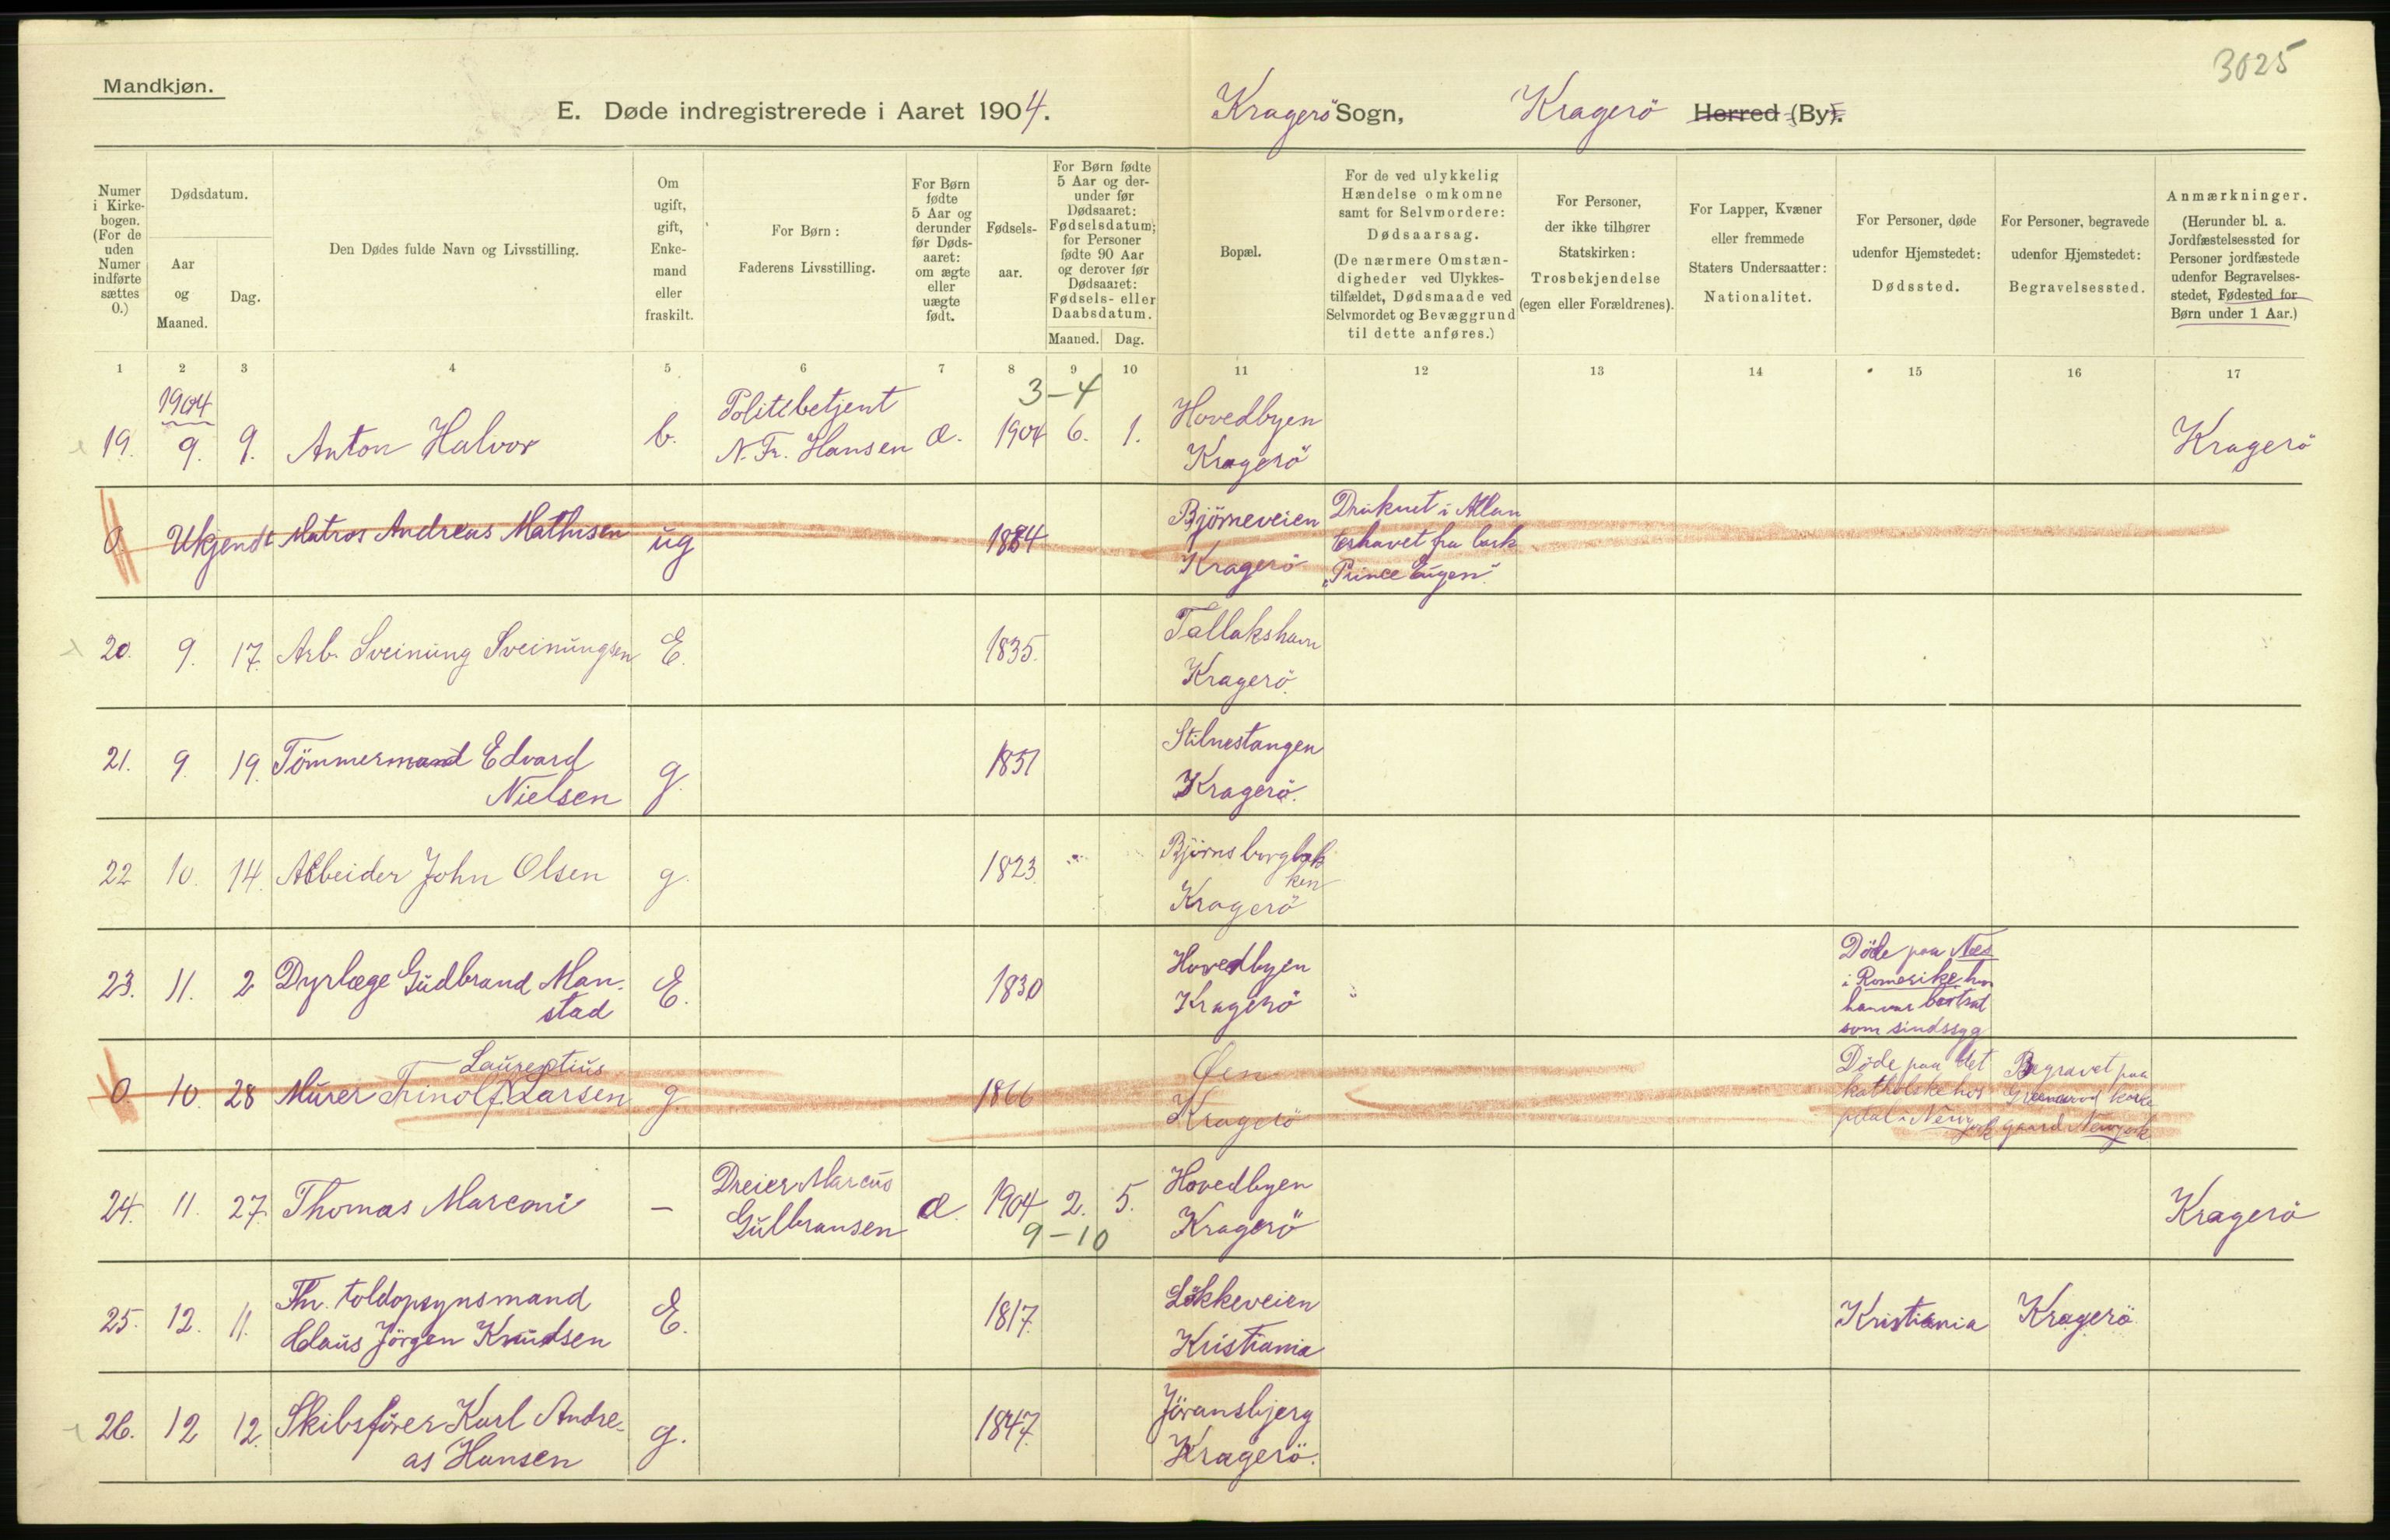 3025
Mandkjøn.
E. Døde indregistrerede i Aaret 1904. Kragerö Sogn, Kragerö Herred (By).
Numer i Kirkebogen. (For de uden Numer indførte sættes 0.)
Dødsdatum.
Aar og Maaned.
Dag.
Den Dødes fulde Navn og Livsstilling.
Om ugift, gift, Enkemand eller fraskilt.
For Børn: Faderens Livsstilling.
For Børn fødte 5 Aar og derunder før Dødsaaret: om ægte eller uægte født.
Fødselsaar.
For Børn fødte 5 Aar og derunder før Dødsaaret: Fødselsdatum; for Personer fødte 90 Aar og derover før Dødsaaret: Fødsels- eller Daabsdatum.
Maaned. Dag.
Bopæl.
For de ved ulykkelig Hændelse omkomne samt for Selvmordere: Dødsaarsag. (De nærmere Omstændigheder ved Ulykkestilfældet, Dødsmaade ved Selvmordet og Bevæggrund til dette anføres.)
For Personer, der ikke tilhører Statskirken: Trosbekjendelse (egen eller Forældrenes).
For Lapper, Kvæner eller fremmede Staters Undersaatter: Nationalitet.
For Personer, døde udenfor Hjemstedet: Dødssted.
For Personer, begravede udenfor Hjemstedet: Begravelsessted.
Anmærkninger. (Herunder bl. a. Jordfæstelsessted for Personer jordfæstede udenfor Begravelsesstedet, Fødested for Børn under 1 Aar.)
1 2 3 4 5 6 7 8 9 10 11 12 13 14 15 16 17
1904
3-4
19. 9. 9. Anton Halvor b. Politibetjent N. Fr. Hansen 1904 6. 1. Hovedbyen Kragerö Kragerö
0. Ukjendt Matros Andreas Mathisen ug 1884 Björneveien Kragerö Druknet i Atlanterhavet fra bark "Prince Eugen".
20. 9. 17. Arb. Sveinung Sveinungsen E. 1835. Tallakshavn Kragerö.
21. 9. 19. Tömmermand Edvard Nielsen g. 1851 Stilnestangen Kragerö.
22 10. 14. Arbeider John Olsen g. 1823. Björnsborgbakken Kragerö
23. 11. 2 Dyrlæge Gudbrand Manstad E. 1830 Hovedbyen Kragerö Döde paa Næs i Romerike hvor han var bortsat som sindssyg
0. 10. 28 Murer Trinolf Laurentius Larsen g. 1866 Øen Kragerö Döde paa det katholske hospital i Newyork Begravet paa Greenwood kirkegaard Newyork
24. 11. 27. Thomas Marconi - Dreier Marcus Gulbransen 1904 2. 5. Hovedbyen Kragerö Kragerö
9-10
25. 12. 11. Fhv. toldopsynsmand Claus Jörgen Knudsen E. 1817. Lökkeveien Kristiania Kristiania Kragerö
26. 12 12. Skibsförer Karl Andreas Hansen g. 1847. Jöransbjerg Kragerö.